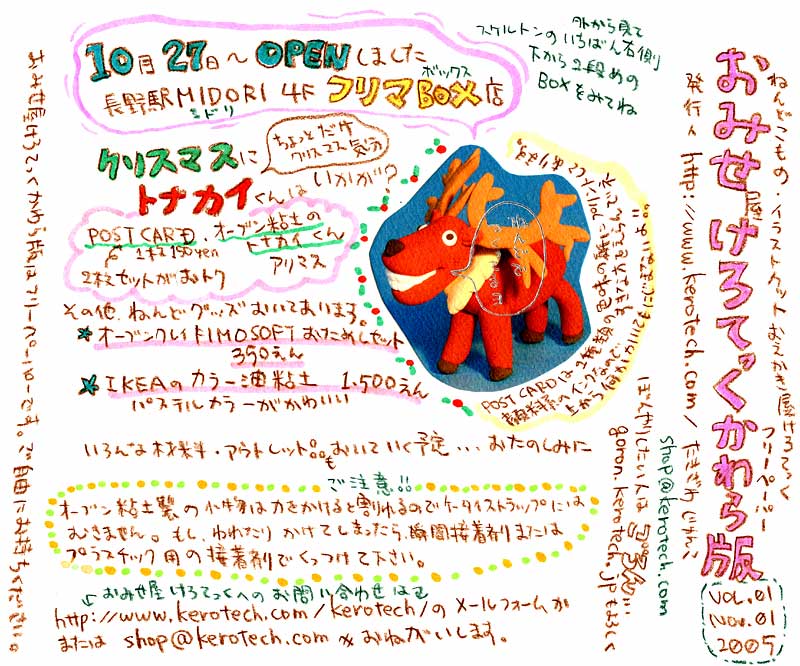 ねんどこもの・イラストカット おえかき屋けろてっく
フリーペーパー
おみせ屋けろてっくかわら版
発行人 http://www.kerotech.com/
shop@kerotech.com
VOL.01
Nov.01
2005
10月27日〜OPENしました
長野駅MIDORI 4F フリマBOX店
ミドリ
ボックス
外から見て
スケルトンのいちばん右側
下から2段めの
BOXをみてね
クリスマスに
トナカイくんは
いかが?
ちょっとだけ
クリスマス気分
POST CARD、オーブン粘土の
トナカイくん
1枚150yen
アリマス
2枚セットがおトク
その他、ねんどグッズおいてあります。
オーブンクレイFIMOSOFTおためしセット
350えん
IKEAのカラー油粘土 1.500えん
パステルカラーがかわいい
POST CARDは2種類
いろんな材料・アウトレット品もおいていく予定...おたのしみに
ご注意!!
オーブン粘土製の小物は力をかけると割れるのでケータイストラップには
むきません。もし、われたりかけてしまったら、瞬間接着剤または
プラスチック用の接着剤でくっつけて下さい。
おみせ屋けろてっくへのお問い合わせは
http://www.kerotech.com/kerotech/のメールフォームか
または shop@kerotech.com におねがいします。
ぼんやりしたい人は
goron.kerotech.jpもよろしく
おみせ屋けろてっくかわら版はフリーペーパーです。ご自由にお持ちください。